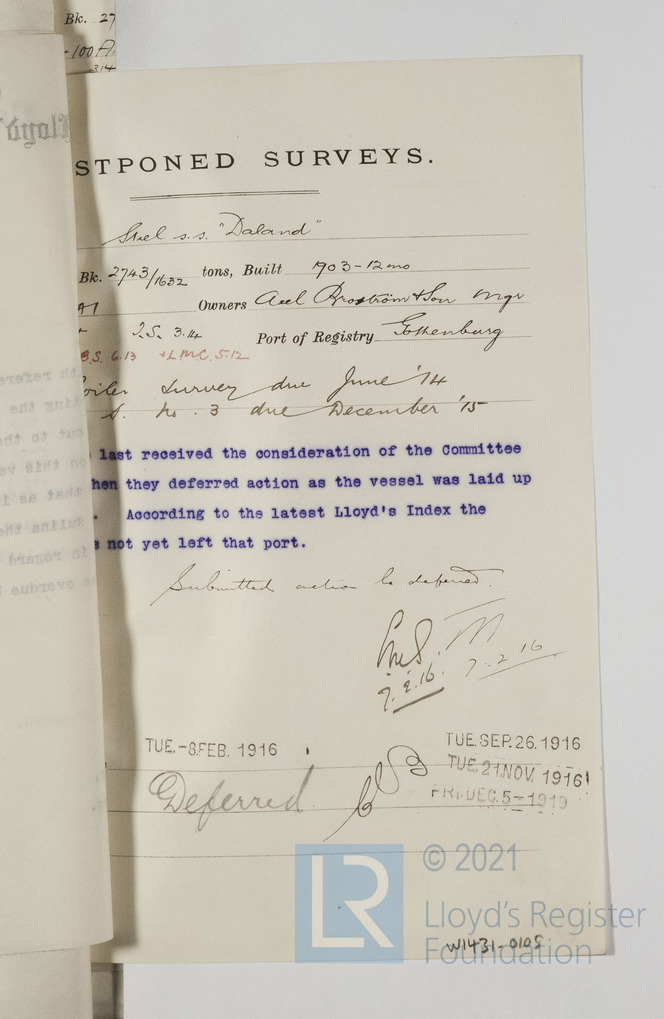 Bk. 27
STPONED SURVEYS.
Steel s.s. "Daland"
Bk. 2743/1632 tons, Built 1903-12mo
Owners Axel Broström & Son Mgr
S.S. 3.14 Port of Registry Gothenburg
B.S. 6.13 +LMC. 5.12
oiler Survey due June '14
S. No. 3 due December '15
last received the consideration of the Committee
hen they deferred action as the vessel was laid up
. According to the latest Lloyd's Index the
s not yet left that port.
Submitted action be deferred.
7.2.16. 7.2.16
TUE.-8FEB. 1916
TUE.SEP.26.1916
TUE.21NOV. 1916
FRI.DEC.5-1919
Deferred
LR
© 2021
Lloyd's Register
Foundation
W1431-0105